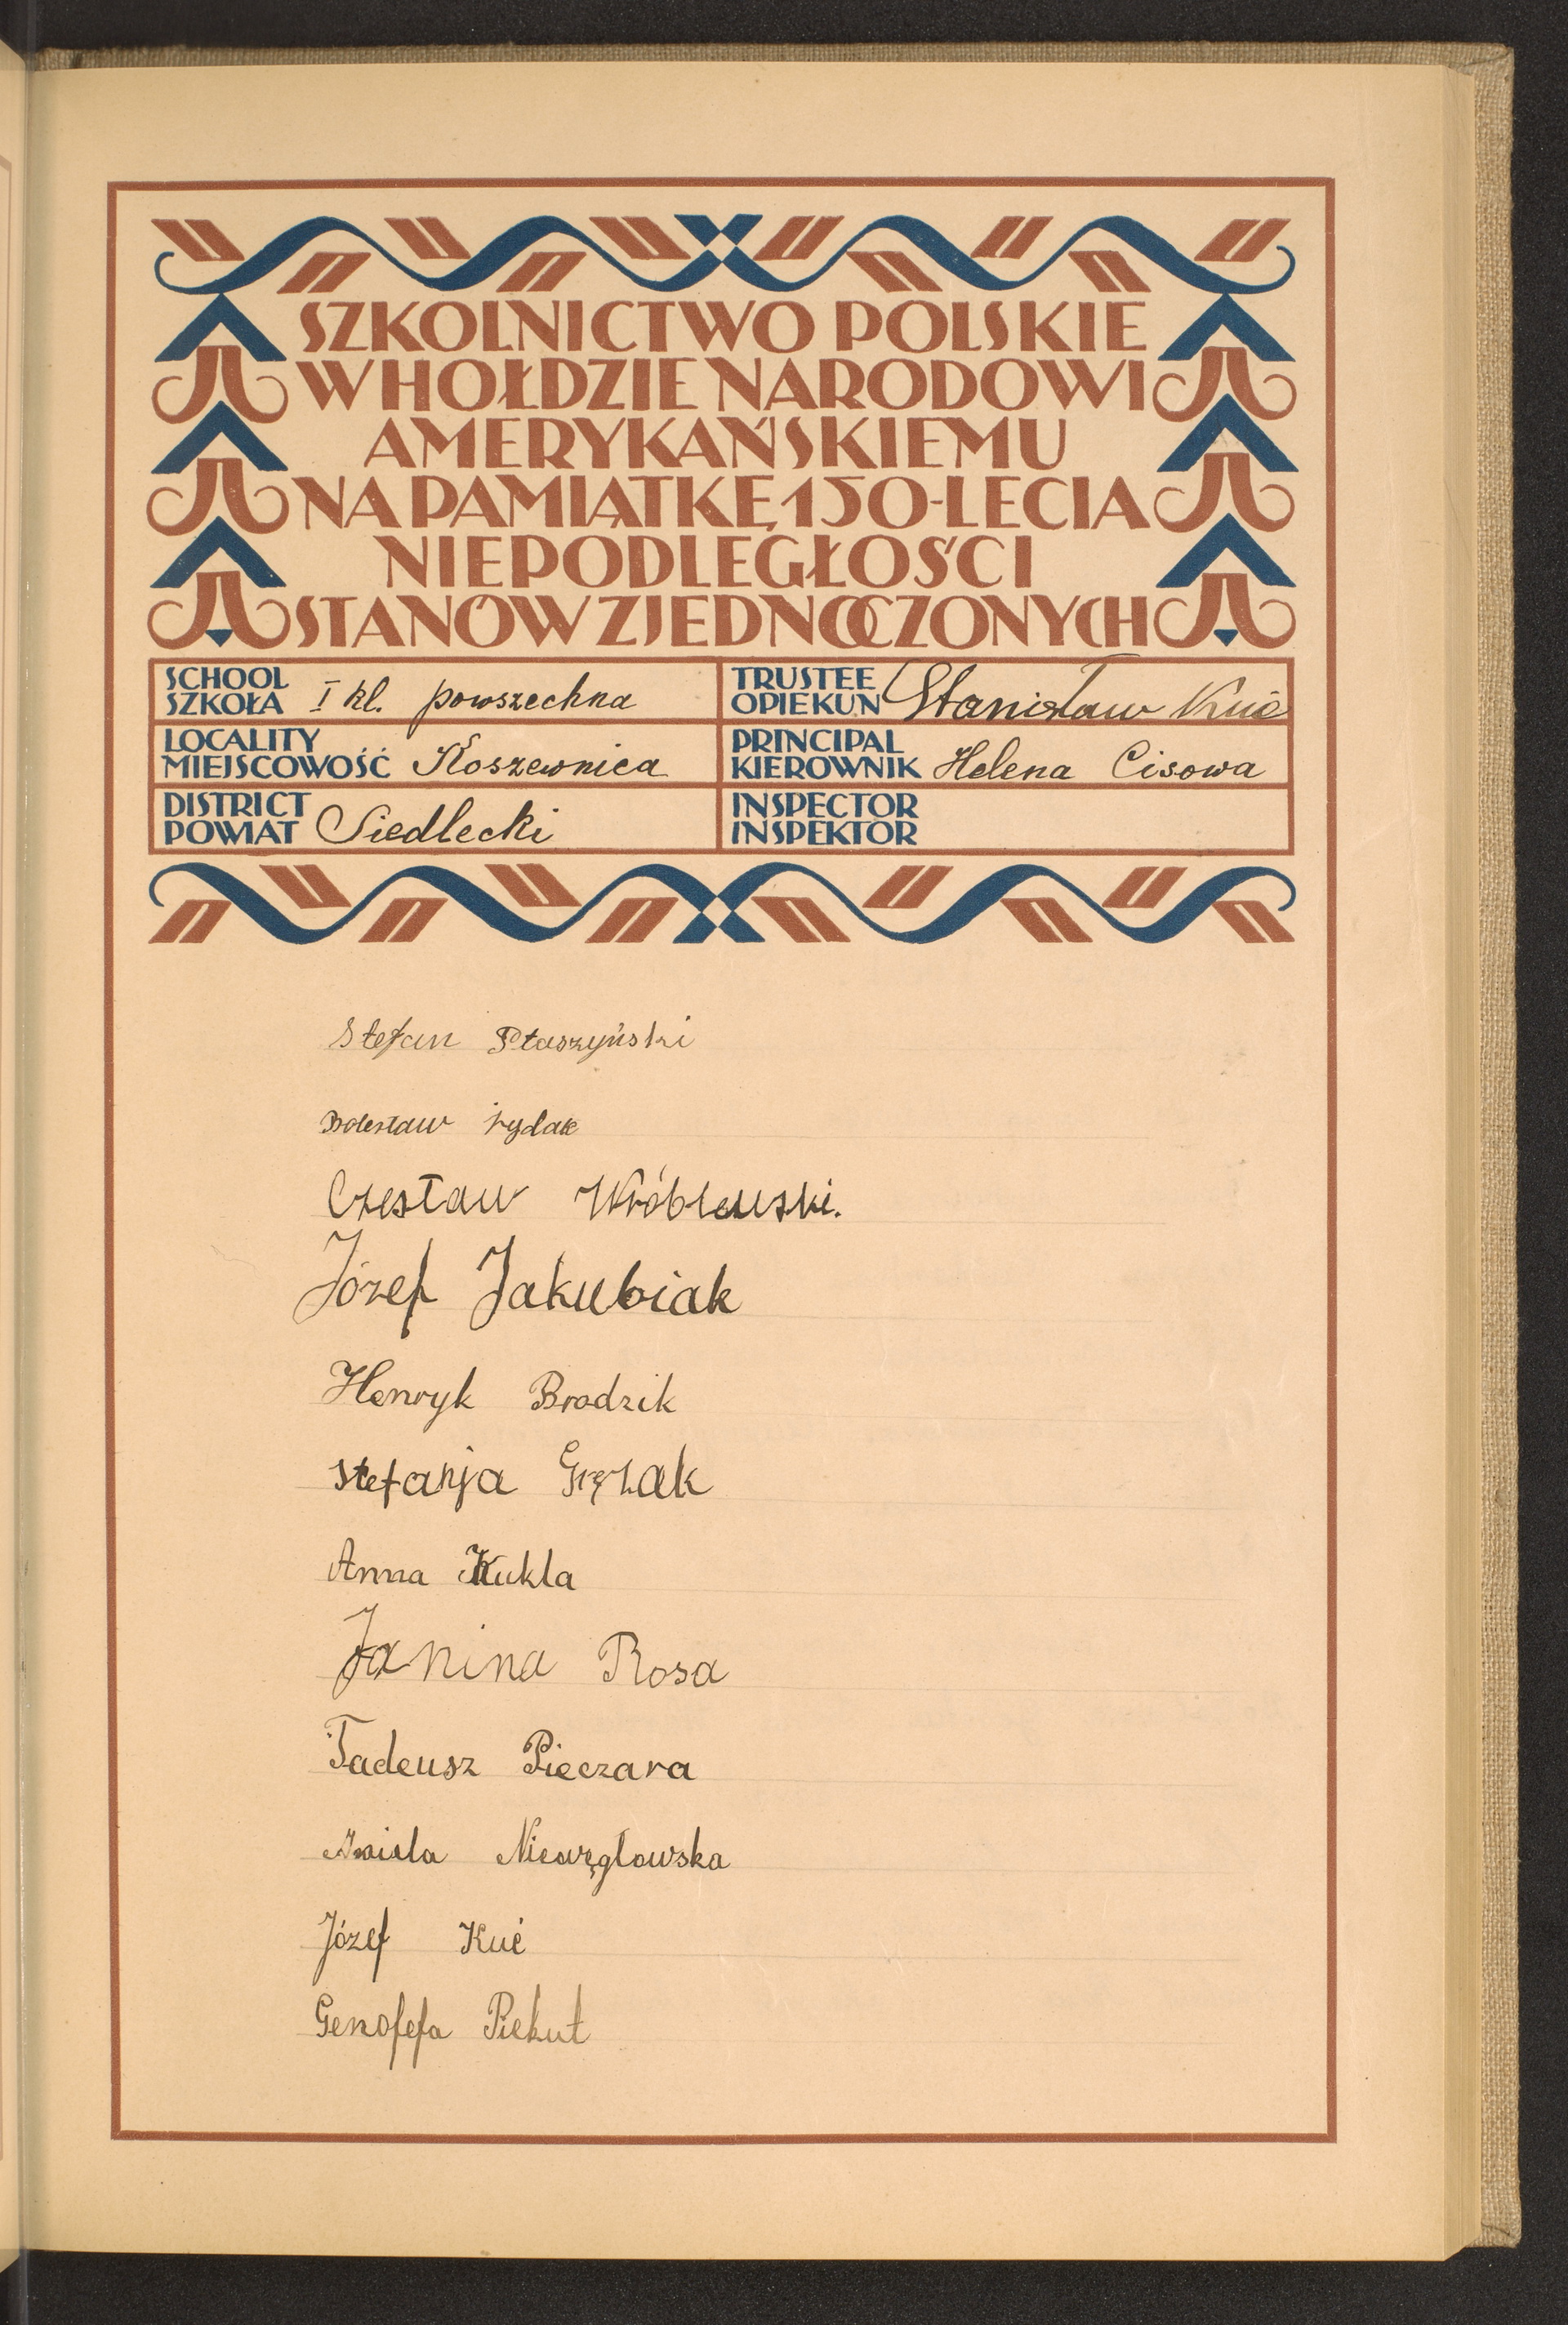 SZKOLNICTWO POLSKIE
W HOŁDZIE NARODOWI
AMERYKAŃSKIEMU
NA PAMIĄTKĘ 150-LECIA
NIEPODLEGŁOŚCI
STANÓW ZJEDNOCZONYCH
SCHOOL
SZKOŁA I kl. powszechna
TRUSTEE
OPIEKUN Stanisław Kuć
LOCALITY
MIEJSCOWOŚĆ Koszewnica
PRINCIPAL
KIEROWNIK Helena Cisowa
DISTRICT
POWIAT Siedlecki
INSPECTOR
INSPEKTOR
Stefan Ptaszyński
Bolesław Rydak
Czesław Wróblewski.
Józef Jakubiak
Henryk Brodzik
Stefanja
Anna Kukla
Janina Rosa
Tadeusz Pieczara
Niewęgłowska
Józef Kuć
Genofefa Piekut